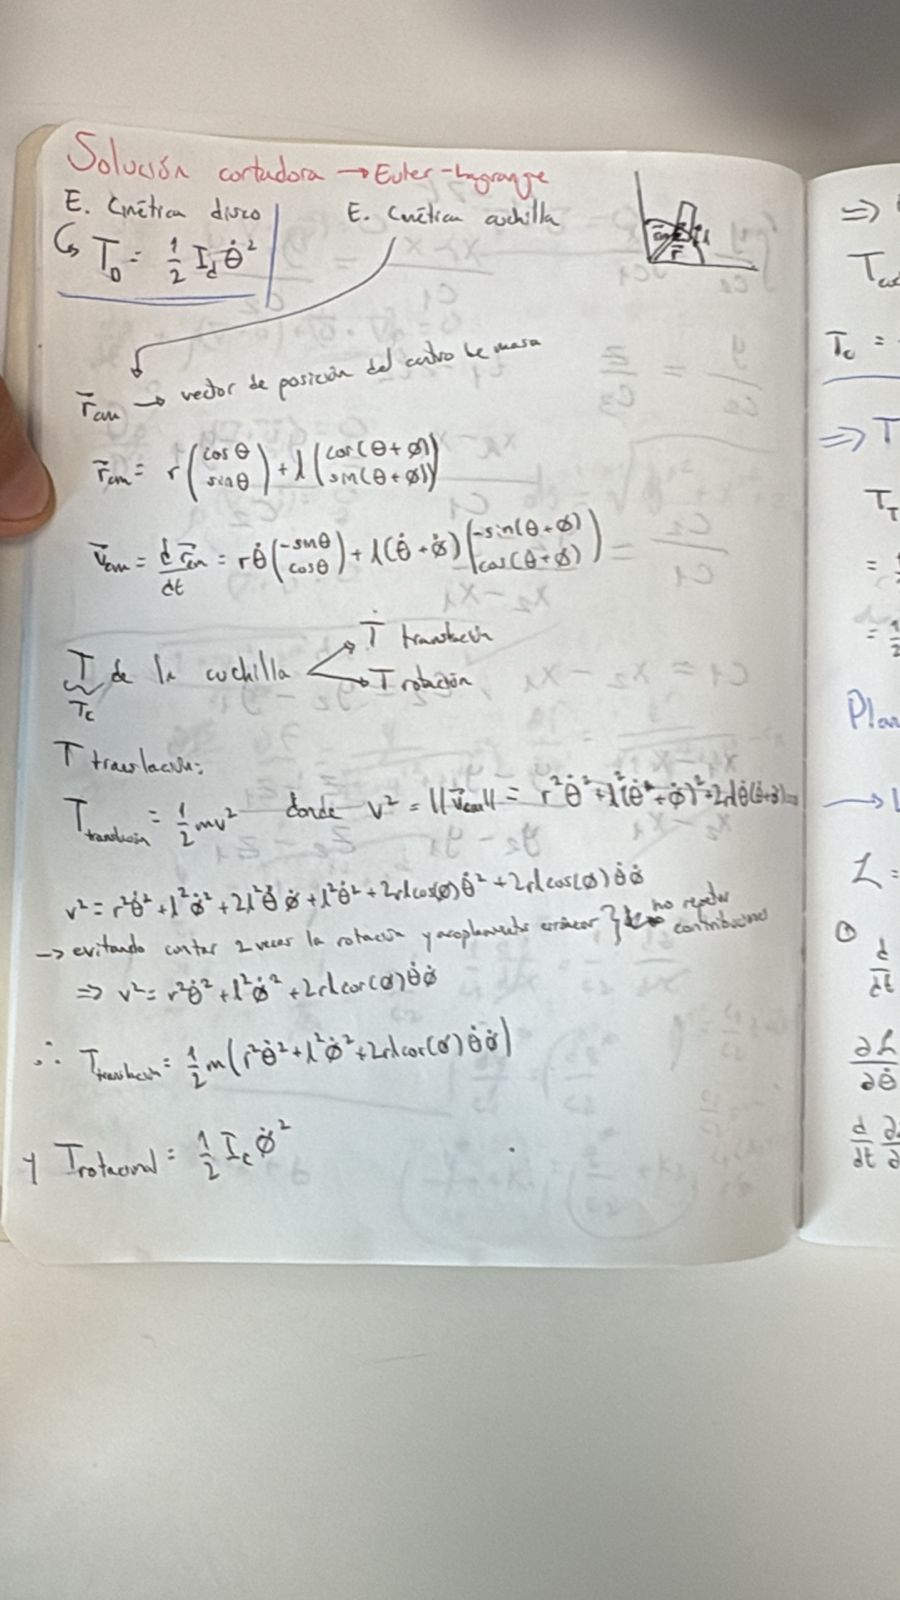 Solución cortadora → Euler-Lagrange
E. Cinética disco
E. Cinética cuchilla
T_D = 1/2 I_d θ̇²
r⃗_cm → vector de posición del centro de masa
r⃗_cm = r (cosθ sinθ) + l (cos(θ+φ) sin(θ+φ))
v⃗_cm = d r⃗_cm / dt = r θ̇ (-sinθ cosθ) + l(θ̇ + φ̇) (-sin(θ+φ) cos(θ+φ))
T de la cuchilla
T translación
T rotación
T_c
T translación:
T_translación = 1/2 mv² donde v² = ||v⃗_cm|| = r²θ̇² + l²(θ̇ + φ̇)² + 2rlθ̇(θ̇+φ̇)
v² = r²θ̇² + l²φ̇² + 2l²θ̇φ̇ + l²θ̇² + 2rlcos(φ)θ̇² + 2rlcos(φ)θ̇φ̇
→ evitando contar 2 veces la rotación y acoplamiento } no repetir contribuciones
⇒ v² = r²θ̇² + l²φ̇² + 2rlcos(φ)θ̇φ̇
∴ T_translación = 1/2 m(r²θ̇² + l²φ̇² + 2rlcos(φ)θ̇φ̇)
y T_rotacional = 1/2 I_c φ̇²
⇒
T_c =
⇒ T
T_T
=
= 1/2
Plan
L =
d/dt
∂L/∂θ̇
d/dt